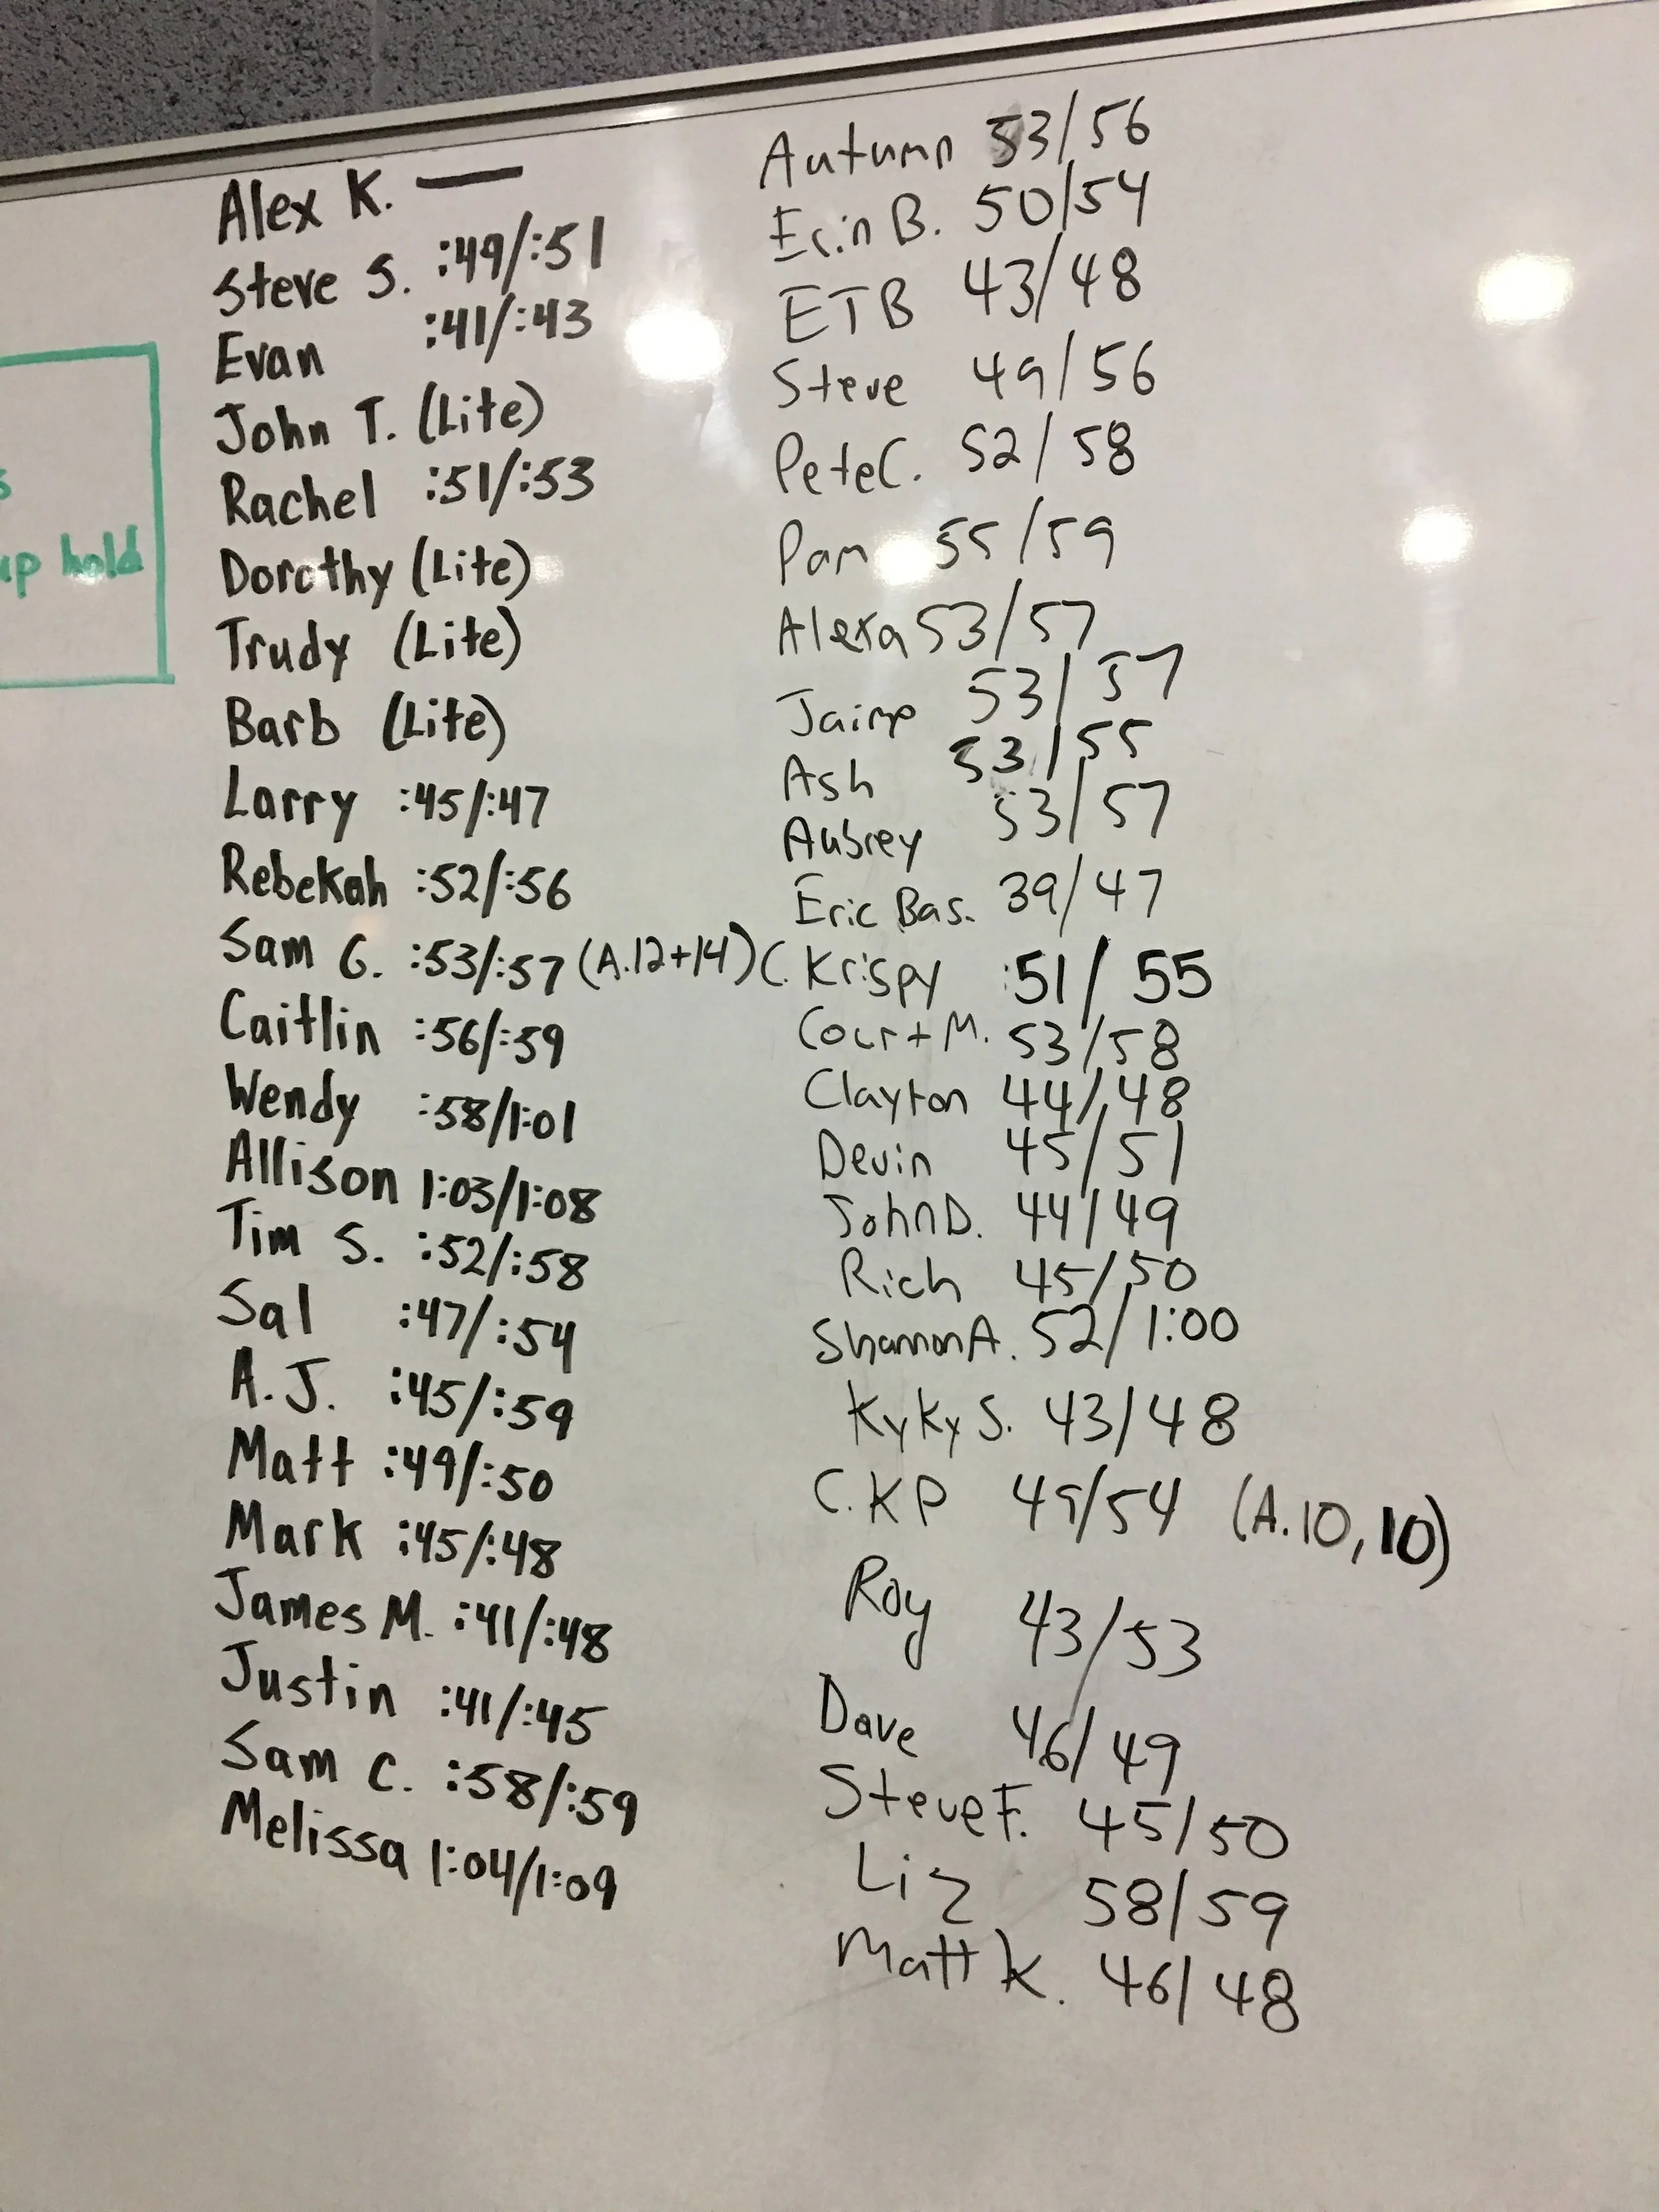 up hold
Alex K. —
Steve S. :49/:51
Evan :41/:43
John T. (Lite)
Rachel :51/:53
Dorothy (Lite)
Trudy (Lite)
Barb (Lite)
Larry :45/:47
Rebekah :52/:56
Sam G. :53/:57 (A.12+14)
Caitlin :56/:59
Wendy :58/1:01
Allison 1:03/1:08
Tim S. :52/:58
Sal :47/:54
A.J. :45/:59
Matt :49/:50
Mark :45/:48
James M. :41/:48
Justin :41/:45
Sam C. :58/:59
Melissa 1:04/1:09
Autumn 53/56
Erin B. 50/54
ETB 43/48
Steve 49/56
Pete C. 52/58
Pam 55/59
Alexa 53/57
Jaime 53/57
Ash 53/55
Aubrey 53/57
Eric Bas. 39/47
C. Krispy :51/55
Court M. 53/58
Clayton 44/48
Devin 45/51
John D. 44/49
Rich 45/50
Shannon A. 52/1:00
KyKy S. 43/48
C.KP 49/54 (A.10,10)
Roy 43/53
Dave 46/49
Steve F. 45/50
Liz 58/59
Matt K. 46/48